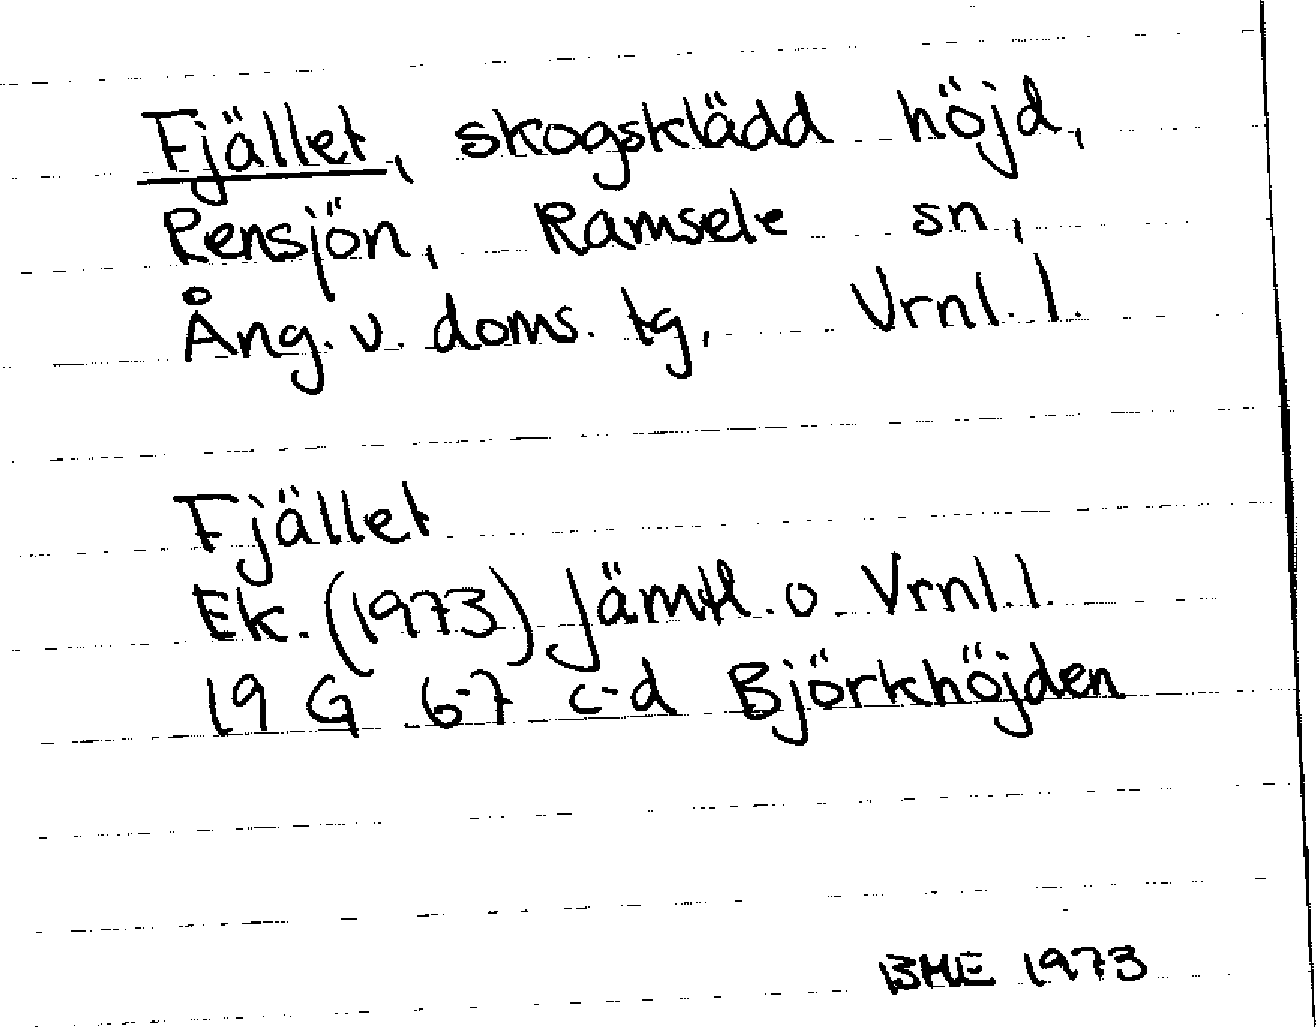 Fjället, skogsklädd höjd,
Rensjön, Ramsele sn,
Ång. v. doms. tg, Vrnl. l.
Fjället
Ek. (1973) Jämtl. o. Vrnl. l.
19 G 6-7 c-d Björkhöjden
BME 1973